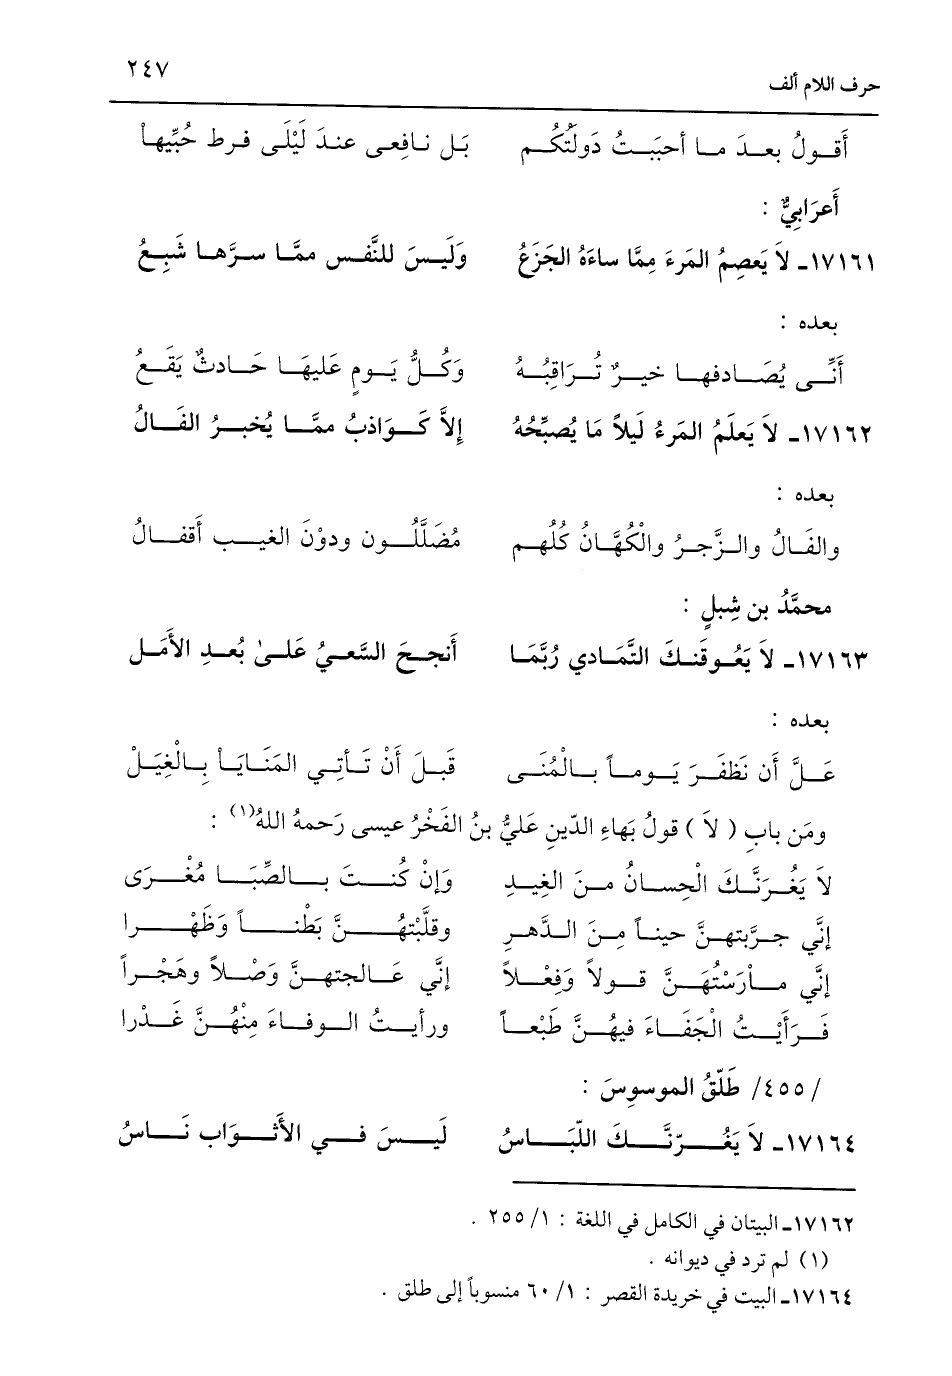 حرف اللام ألف ٢٤٧
أَقولُ بعدَ ما أحبَبتُ دَولَتَكُم بَل نافِعى عندَ لَيْلَى فرط حُبِّيهاْ
أَعرَابِيٌّ :
١٧١٦١ـ لاَ يَعصِمُ المَرءَ مِمَّا ساءَهُ الجَزَعُ وَلَيسَ للنَّفسِ ممَّا سرَّها شَبِعُ
بعده :
أَنَّى يُصَادفها خيرٌ تُرَاقِبُهُ وَكُلُّ يَومٍ عَليهَا حَادثٌ يَقَعُ
١٧١٦٢ـ لاَ يَعلَمُ المَرءُ لَيلاً مَا يُصبِّحُهُ إِلاَّ كَوَاذبُ ممَّا يُخبرُ الفَالُ
بعده :
والفَالُ والزَّجرُ والْكُهَّانُ كُلُهم مُضَلَّلُون ودوْنَ الغيبِ أَقفالُ
محمَّدُ بن شِبلٍ :
١٧١٦٣ـ لاَ يَعُوقَنكَ التَّمَادي رُبَّمَا أَنجحَ السَّعيُ عَلىٰ بُعدِ الأَمَل
بعده :
عَلَّ أَن نَظفَرَ يَوماً بالْمُنَى قَبلَ أَنْ تَأتي المَنَايَاْ بِالْغِيَلْ
ومَن بابِ ( لاَ ) قولُ بَهاءِ الدّينِ عَليُّ بنُ الفَخْرُ عيسى رَحمهُ اللهُ(١) :
لاَ يَغُرَنَّكَ الْحِسانُ منَ الغِيدِ وَإنْ كُنتَ بالصِّبَا مُغْرَى
إنَّي جرَّبتهنَّ حيناً مِنَ الدَّهرِ وقلَّبْتهُنَّ بَطْناً وَظَهْرا
إنَّي ماْرَسْتُهَنَّ قولاً وَفِعْلاً إنَّي عَالجتهنَّ وَصْلاً وهَجْراً
فَرَأَيْتُ الْجَفَاءَ فيهُنَّ طَبْعاً ورأيتُ الوفاءَ مِنْهُنَّ غَدْرا
/ ٤٥٥/ طَلّقُ الموسوِسَ :
١٧١٦٤ـ لاَ يَغُرّنَّكَ اللّبَاسُ لَيسَ في الأَثوَابِ نَاسُ
١٧١٦٢ـ البيتان في الكامل في اللغة : ١/ ٢٥٥ .
(١) لم ترد في ديوانه .
١٧١٦٤ـ البيت في خريدة القصر : ١/ ٦٠ منسوباً إلى طلق .